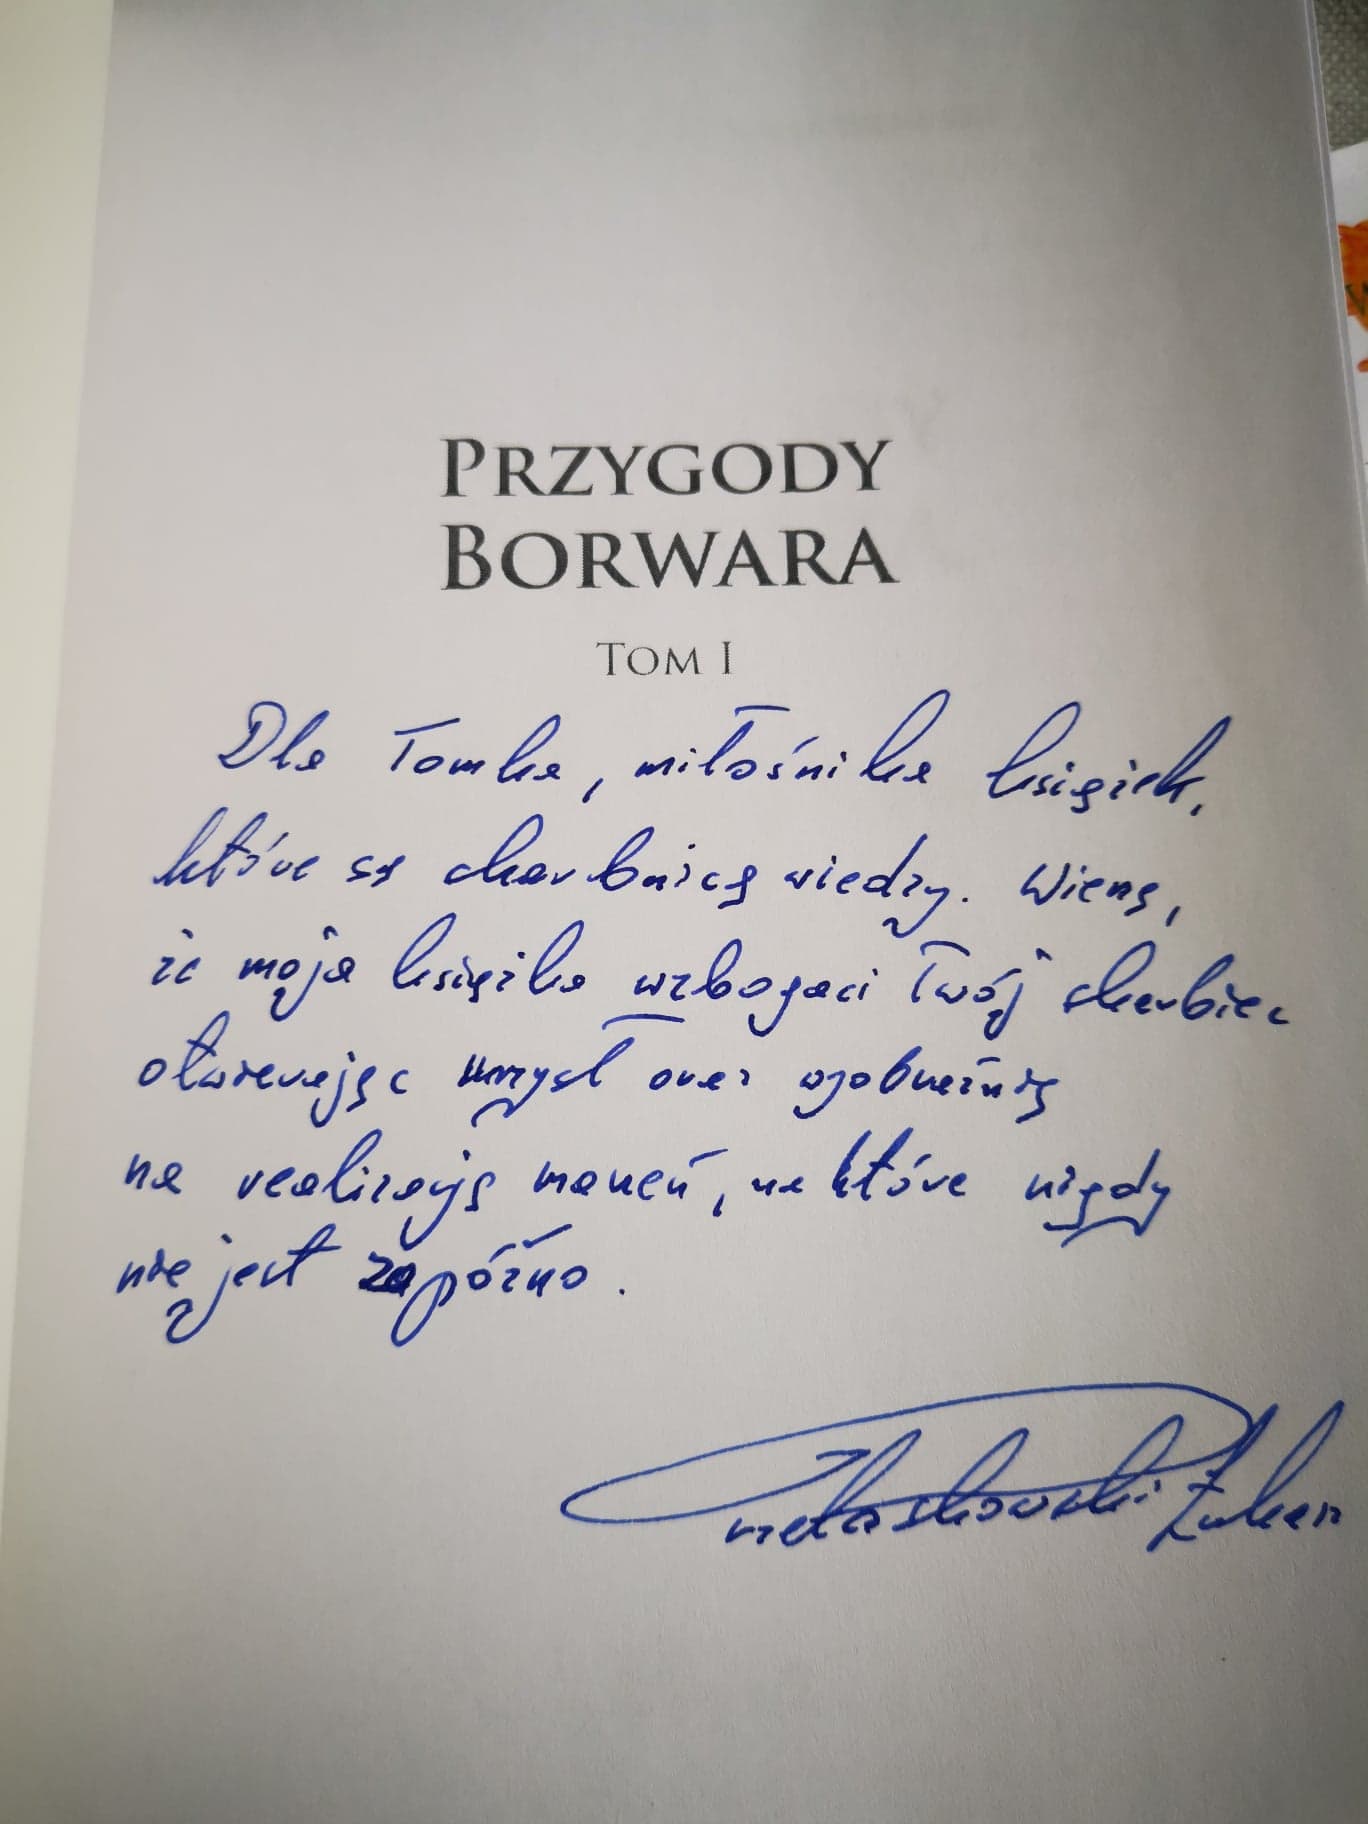 PRZYGODY
BORWARA
TOM I
Dla Tomka, miłośnika książek,
które są skarbnicą wiedzy. Wierzę,
że moja książka wzbogaci Twój skarbiec
otwierając umysł oraz wyobraźnię
na realizację marzeń, na które nigdy
nie jest za późno.